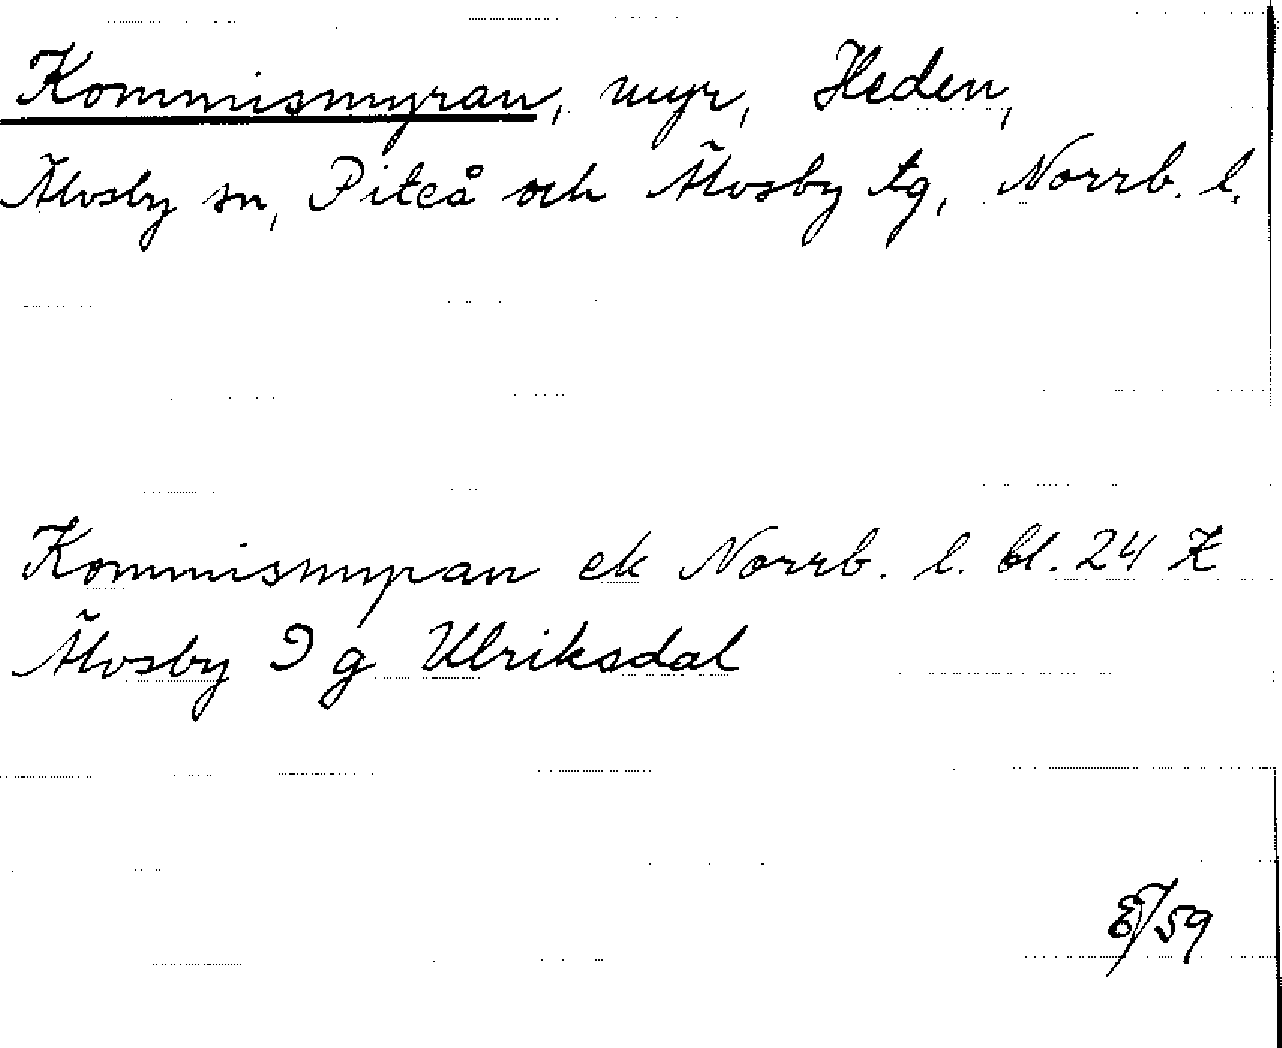 Kommismyran, myr, Heden,
Älvsby sn, Piteå och Älvsby tg, Norrb. l.
Kommismyran ek Norrb. l. bl. 24 Z
Älvsby I g Ulriksdal
/59